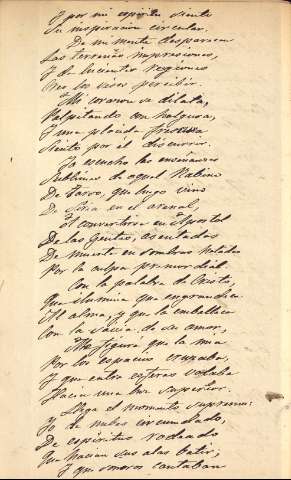 Y por mi espíritu siento
Su inspiracion circular.
De mi mente desparecen
Las terrenas impresiones,
Y de lucientes regiones
Creo los ecos percibir.
Mi corazon se dilata,
Palpitando con holgura,
Y una plácida frescura
Siento por él discurrir.
Ya escucho las enseñanzas
Sublimes de aquel Rabino
De Tarso, que luego vino
De Siria en el arenal,
A convertirse en el portal
De las gentes, asentadas
De muerte en sombras heladas
Por la culpa primordial
Con la palabra de Cristo,
Que ilumina y que engrandece
Al alma, y que la embellece
Con la savia de su amor,
Me figuro que la mia
Por los espacios cruzaba,
Y que entre esferas volaba
Hacia una luz superior.
Llega el momento supremo:
Yo de nubes circundado,
De espíritus rodeado
Que hacian sus alas batir,
Y que sonoros cantaban